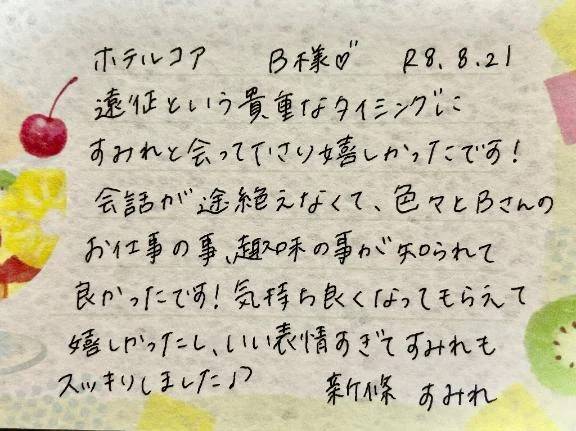 ホテルコア B様♡ R8.8.21
遠征という貴重なタイミングに
すみれと会って下さり嬉しかったです!
会話が途絶えなくて、色々とBさんの
お仕事の事、趣味の事が知られて
良かったです!気持ち良くなってもらえて
嬉しかったし、いい表情すぎてすみれも
スッキリしました♪ 新條 すみれ